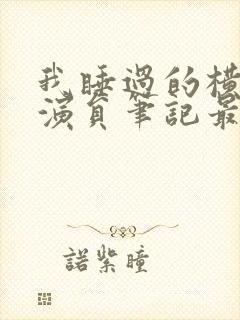 我睡過的橫
演員筆記最
諾紫瞳